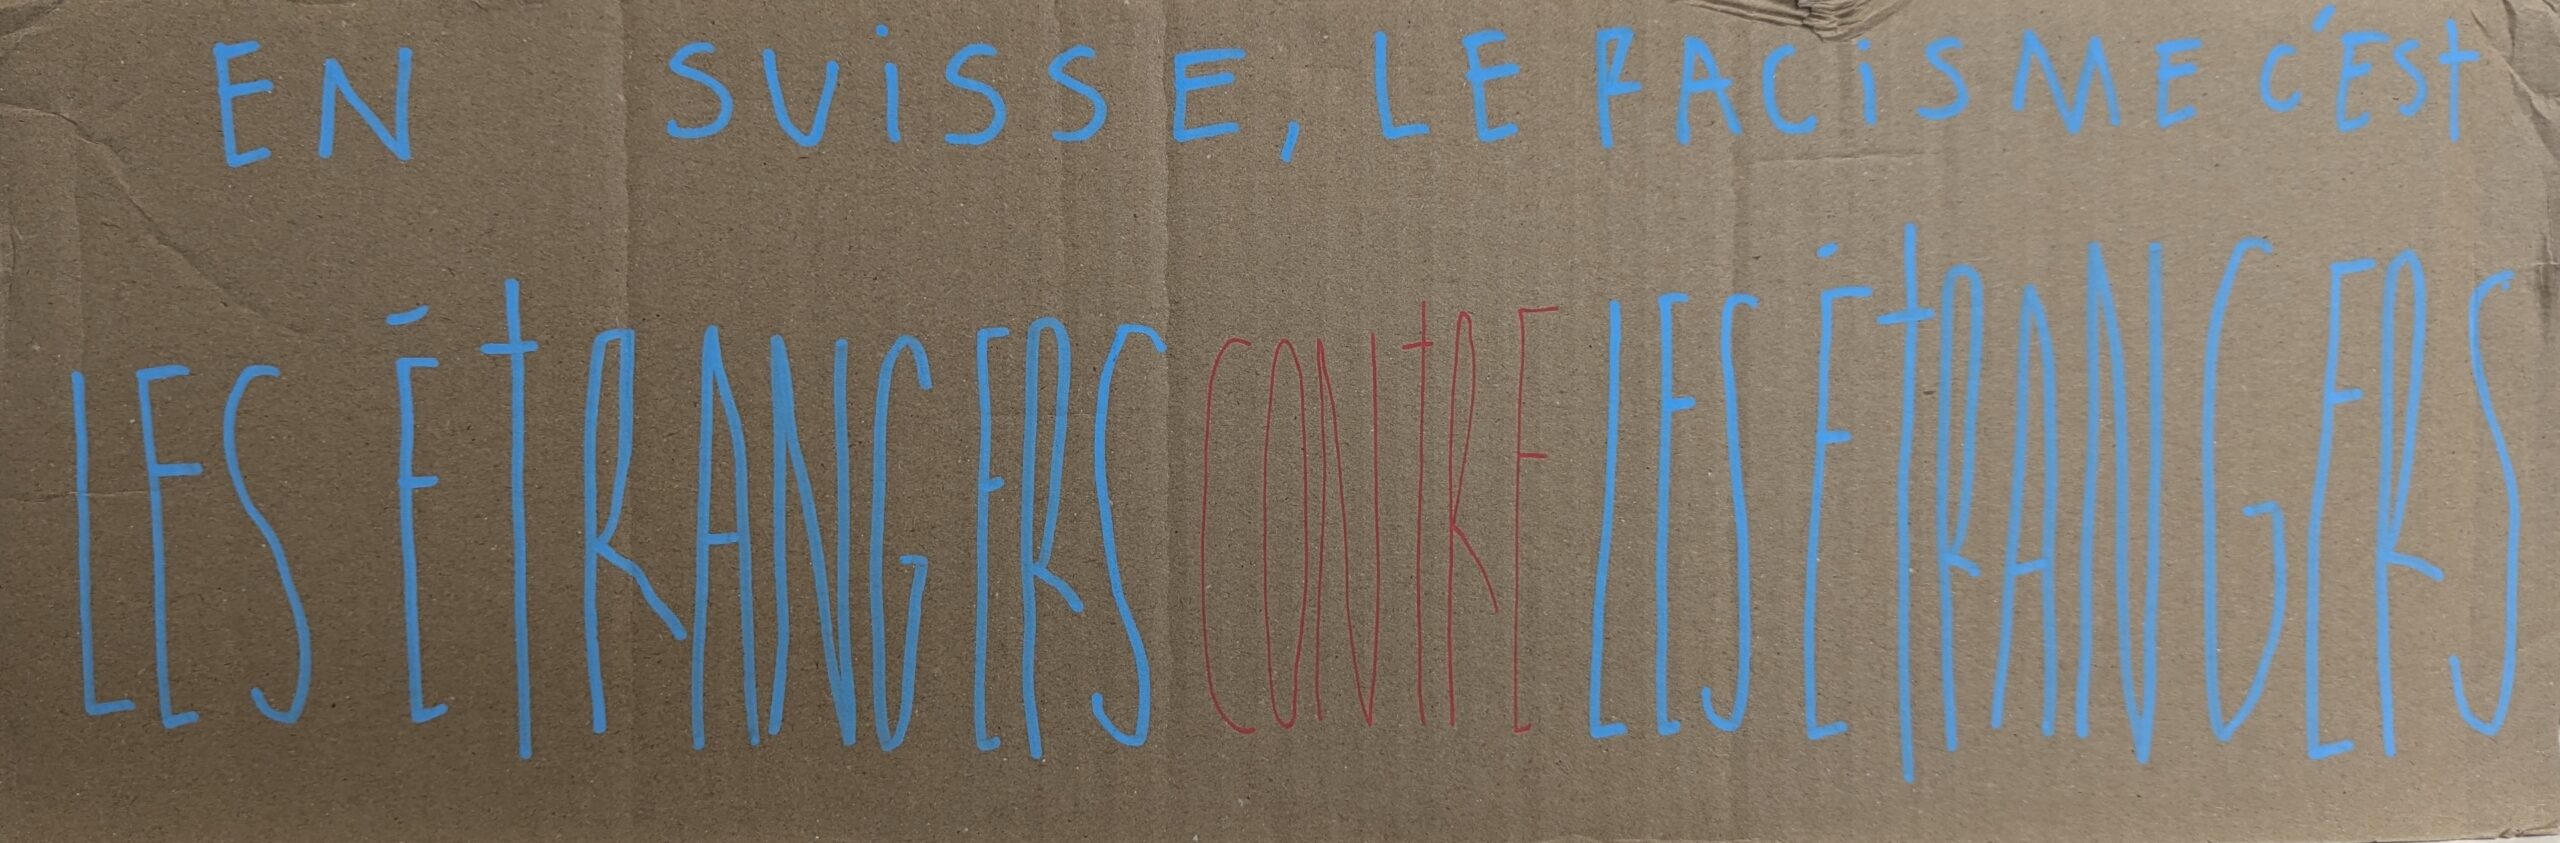 EN SUiSSE, LE RACiSME C'ESt
LES ÉtRANGERS CONtRE LES ÉtRANGERS